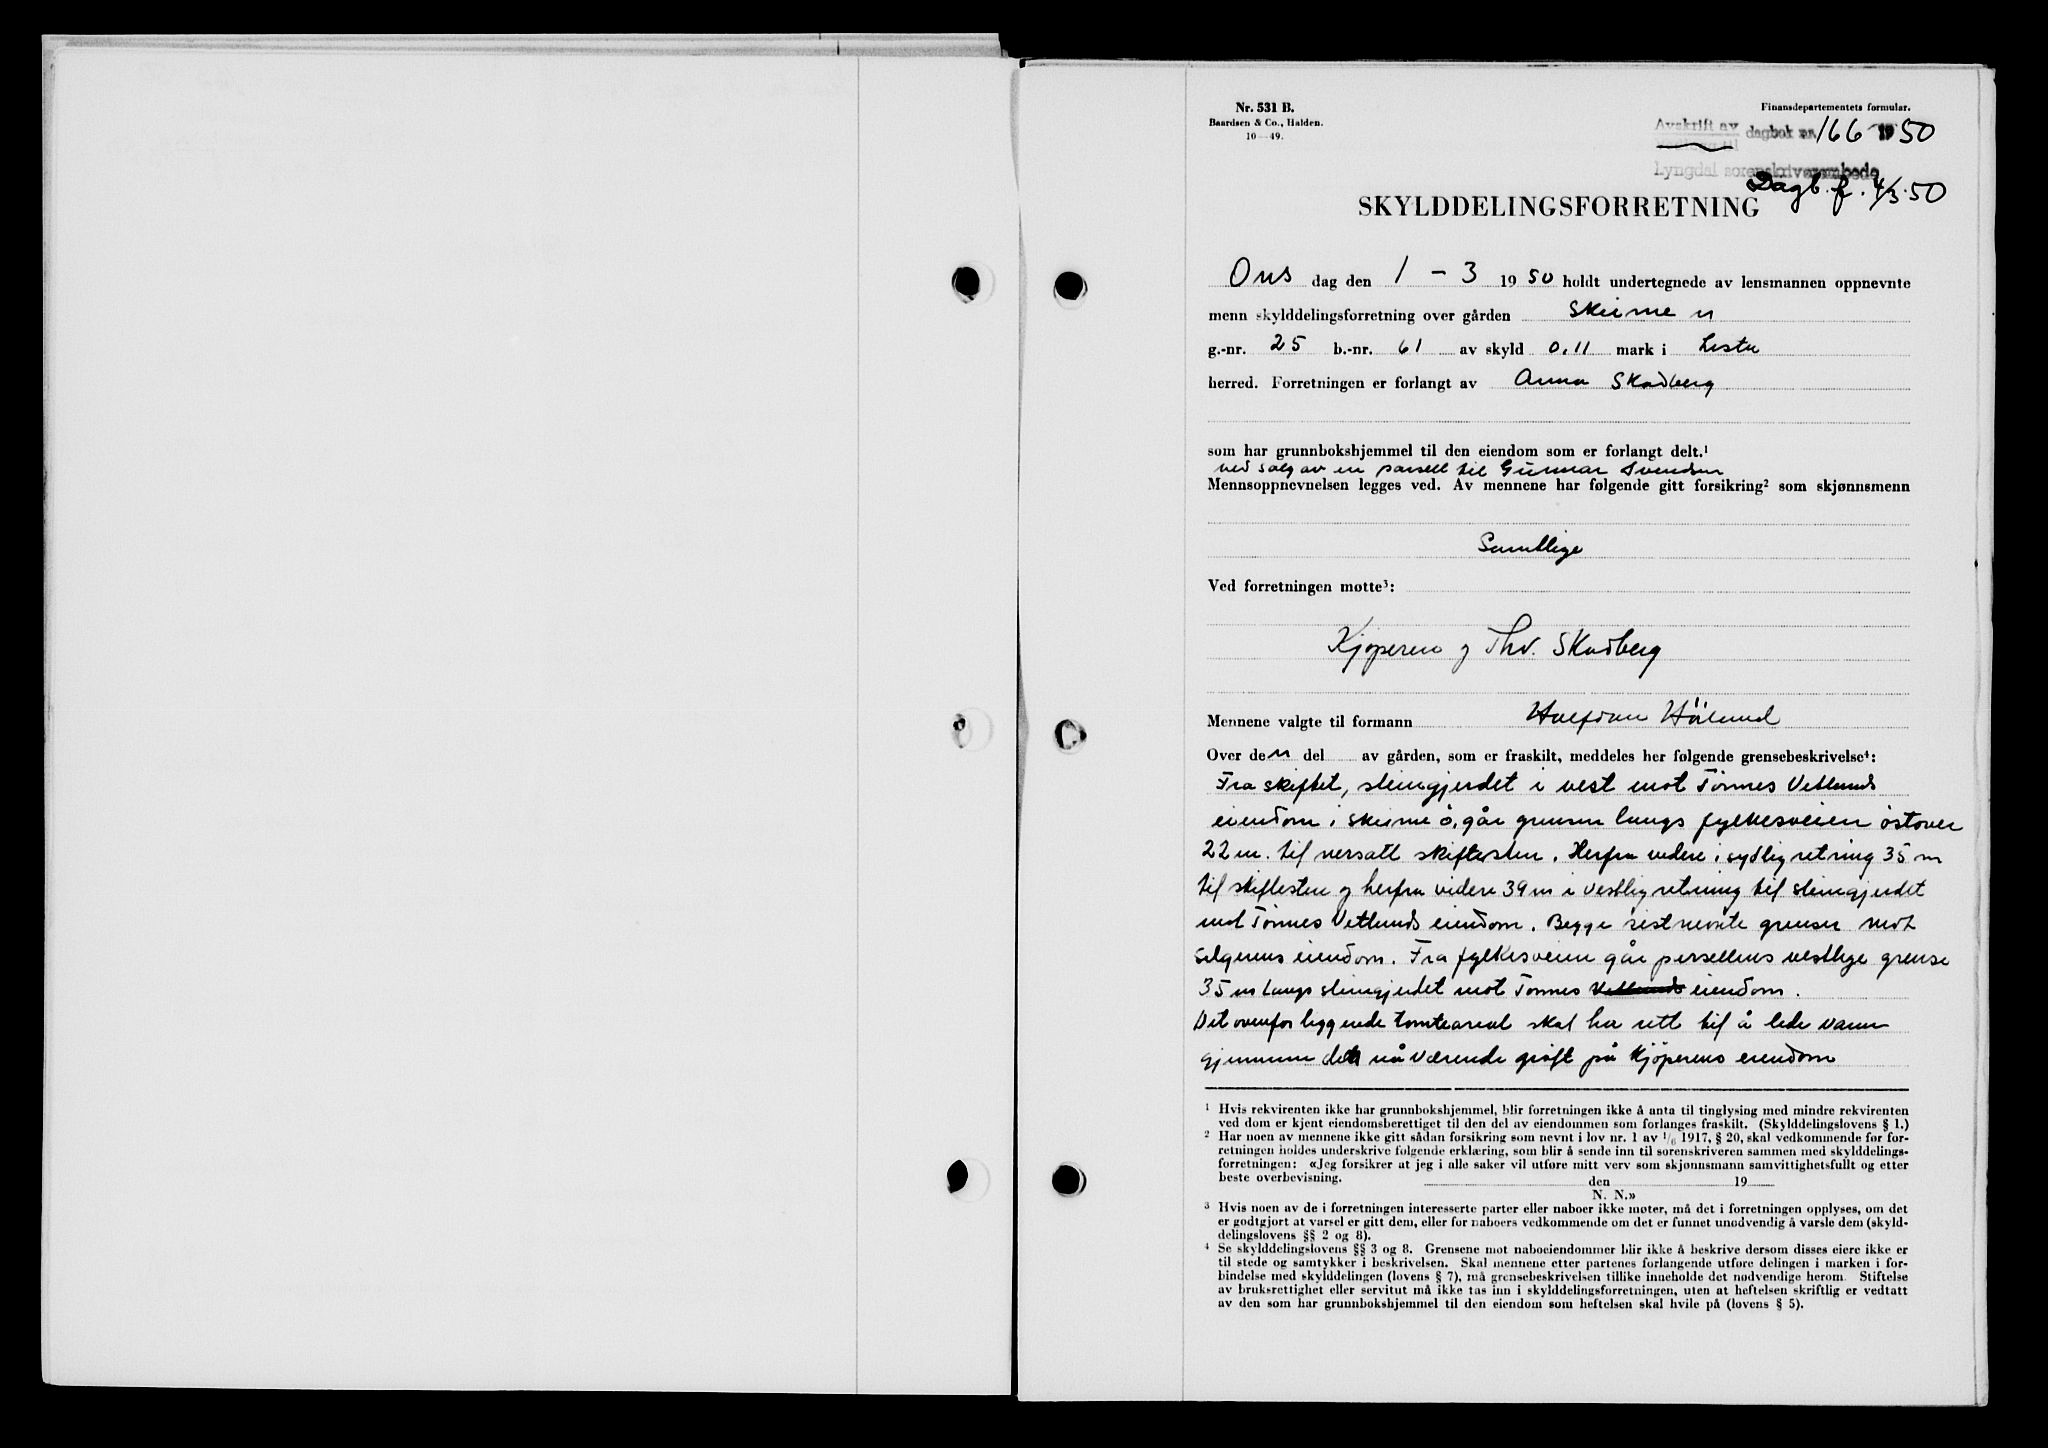 Nr. 531 B.
Baardsen & Co., Halden.
10—49.
Finansdepartementets formular.
Avskrift av dagbok nr. 166 1950
Lyngdal sorenskriverembede
Dagb. f. 4/3 50
SKYLDDELINGSFORRETNING
Ons dag den 1 - 3 1950 holdt undertegnede av lensmannen oppnevnte
menn skylddelingsforretning over gården Skeime n
g.-nr. 25 b.-nr. 61 av skyld 0,11 mark i Lista
herred. Forretningen er forlangt av Anna Skadberg
som har grunnbokshjemmel til den eiendom som er forlangt delt.¹
ved salg av en parsell til Gunnar Svendsen
Mennsoppnevnelsen legges ved. Av mennene har følgende gitt forsikring² som skjønnsmenn
Samtlige
Ved forretningen møtte³:
Kjøperen og Thv. Skadberg
Mennene valgte til formann Halfdan Håland
Over den del av gården, som er fraskilt, meddeles her følgende grensebeskrivelse⁴:
Fra skiftet, steingjerdet i vest mot Tönnes Vetlands
eiendom i Skeime ö, går grensen langs fylkesveien östover
22 m. til nersatt skiftesten. Herfra videre i sydlig retning 35 m
til skiftesten og herfra videre 39 m i vestlig retning til steingjerdet
mot Tönnes Vetlands eiendom. Begge sistnevnte grenser mot
selgerens eiendom. Fra fylkesveien går parsellens vestlige grense
35 m langs steingjerdet mot Tönnes Vetlands eiendom.
Det ovenforliggende tomteareal skal ha rett til å lede vann
gjennem den nåværende gröft på Kjöperens eiendom
¹ Hvis rekvirenten ikke har grunnbokshjemmel, blir forretningen ikke å anta til tinglysing med mindre rekvirenten
ved dom er kjent eiendomsberettiget til den del av eiendommen som forlanges fraskilt. (Skylddelingslovens § 1.)
² Har noen av mennene ikke gitt sådan forsikring som nevnt i lov nr. 1 av 1/6 1917, § 20, skal vedkommende før for-
retningen holdes underskrive følgende erklæring, som blir å sende inn til sorenskriveren sammen med skylddelings-
forretningen: «Jeg forsikrer at jeg i alle saker vil utføre mitt verv som skjønnsmann samvittighetsfullt og etter
beste overbevisning. den 19
N. N.»
³ Hvis noen av de i forretningen interesserte parter eller naboer ikke møter, må det i forretningen opplyses, om det
er godtgjort at varsel er gitt dem, eller for naboers vedkommende om det er funnet unødvendig å varsle dem (skyld-
delingslovens §§ 2 og 8).
⁴ Se skylddelingslovens §§ 3 og 8. Grensene mot naboeiendommer blir ikke å beskrive dersom disses eiere ikke er
til stede og samtykker i beskrivelsen. Skal mennene etter partenes forlangende utføre delingen i marken i for-
bindelse med skylddelingen (lovens § 7), må grensebeskrivelsen tillike inneholde det nødvendige herom. Stiftelse
av bruksrettighet eller servitut må ikke tas inn i skylddelingsforretningen, uten at heftelsen skriftlig er vedtatt
av den som har grunnbokshjemmel til den eiendom som heftelsen skal hvile på (lovens § 5).